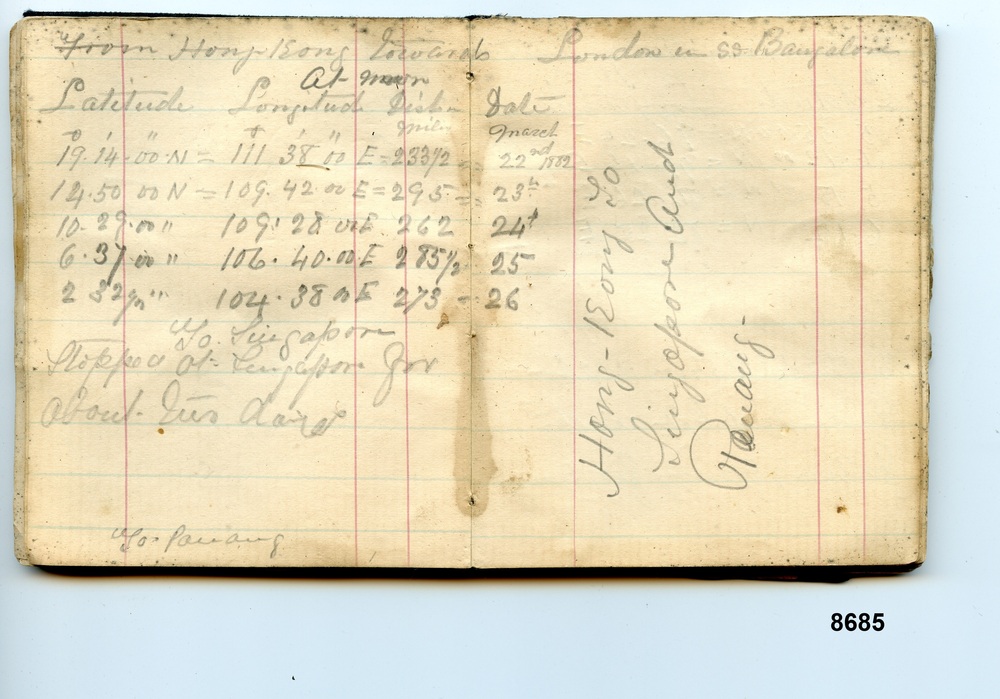 From Hong-Kong towards London in SS. Bangalore
At noon
Latitude Longitude Dist in Date
Miles March
° ' " ° ' "
19.14.00.N = 111 38 00 E = 233 1/2 22nd 1882
14.50 00 N = 109.42 00 E = 295 = 23
10.29.00 " 109.28 00 E 262 24
6.37 00 " 106.40.00 E 285 1/2 25
2 32 " 104.38 00 E 273 - 26
To Singapore
Stopped at Singapore for
about two days
To Penang
Hong-Kong To
Singapore And
Penang-
8685